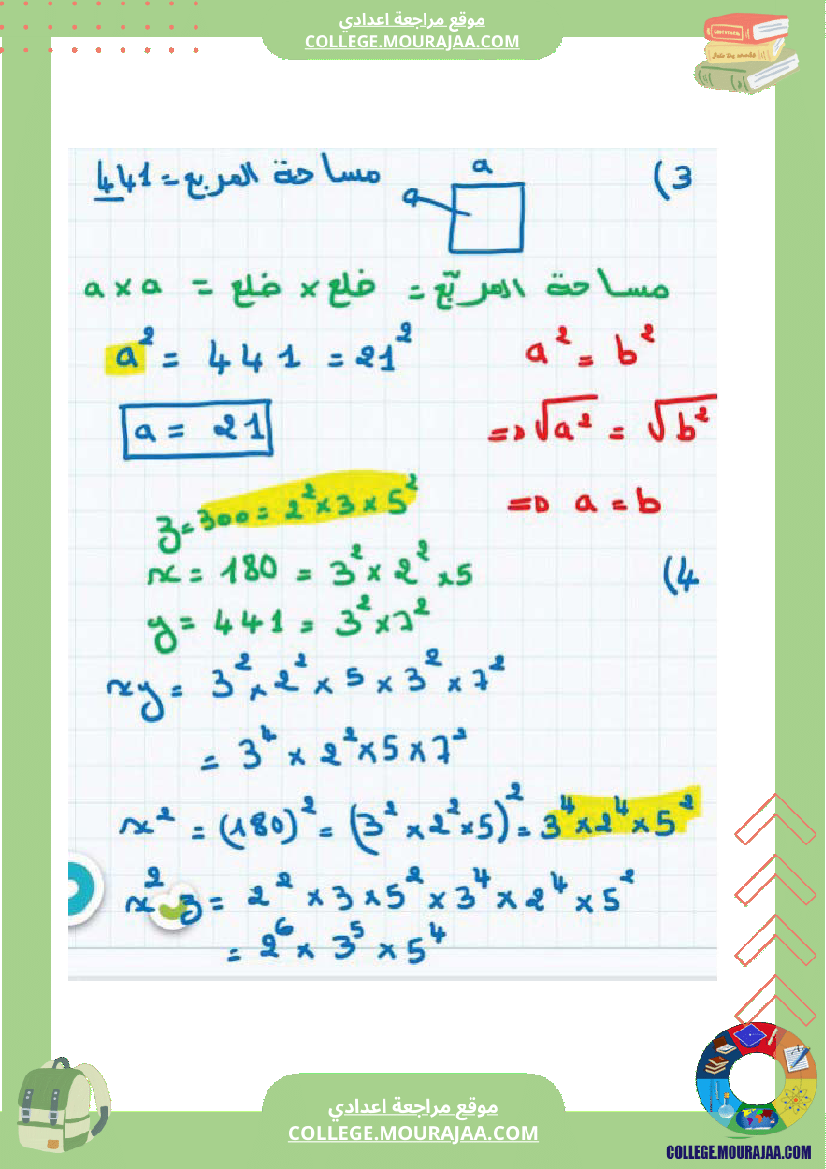 موقع مراجعة اعدادي
COLLEGE.MOURAJAA.COM
3)
a
a
مساحة المربع = 441
مساحة المربّع = ضلع × ضلع = a × a
a² = 441 = 21²
a² = b²
a = 21
=> √a² = √b²
=> a = b
z = 300 = 2² × 3 × 5²
4)
x = 180 = 3² × 2² × 5
y = 441 = 3² × 7²
xy = 3² × 2² × 5 × 3² × 7²
= 3⁴ × 2² × 5 × 7²
x² = (180)² = (3² × 2² × 5)² = 3⁴ × 2⁴ × 5²
x² z = 2² × 3 × 5² × 3⁴ × 2⁴ × 5²
= 2⁶ × 3⁵ × 5⁴
موقع مراجعة اعدادي
COLLEGE.MOURAJAA.COM
COLLEGE.MOURAJAA.COM